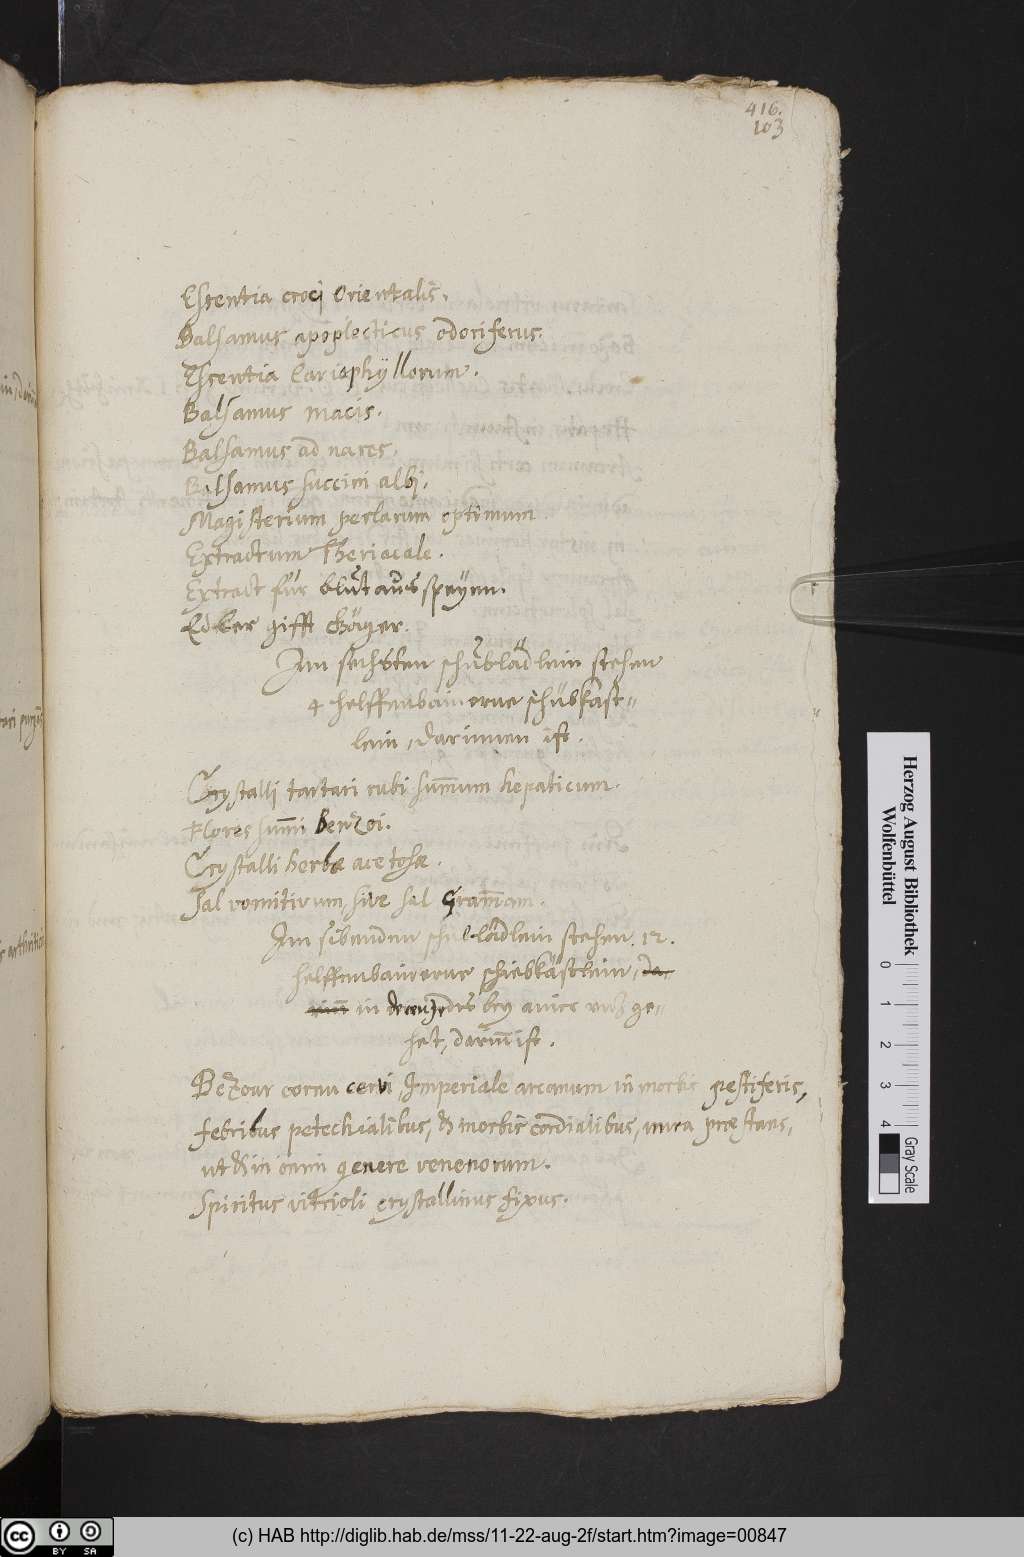 416.
103
Essentia croci Orientalis.
Balsamus apoplecticus odoriferus.
Essentia Cariophyllorum.
Balsamus macis.
Balsamus ad nares.
Balsamus succini albi.
Magisterium perlarum optimum
Extractum Theriacale.
Extract für blůt aus speyen.
Edler gifft
Im sechsten schůblädlein stehen
4 helffenbainerne schubkäst=
lein, darinnen ist.
Crystalli tartari rubi summum hepaticum.
Flores summi benzoi.
Crystalli herbæ acetosæ.
Sal vomitivum, sive sal Gramam.
Im sibenden schublädlein stehen 12.
helffenbainerne schiebkästlein, da
rinn in deren jedes bey ainer unß ge=
het, darinn ist.
Bezoar cornu cervi Imperiale arcanum in morbis pestiferis,
febribus petechialibus, & morbis cordialibus, mira præstans,
ut & in omni genere venenorum.
Spiritus vitrioli crystallinus fixus.
Herzog August Bibliothek
Wolfenbüttel
0 1 2 3 4
Gray Scale
cc BY SA
(c) HAB http://diglib.hab.de/mss/11-22-aug-2f/start.htm?image=00847